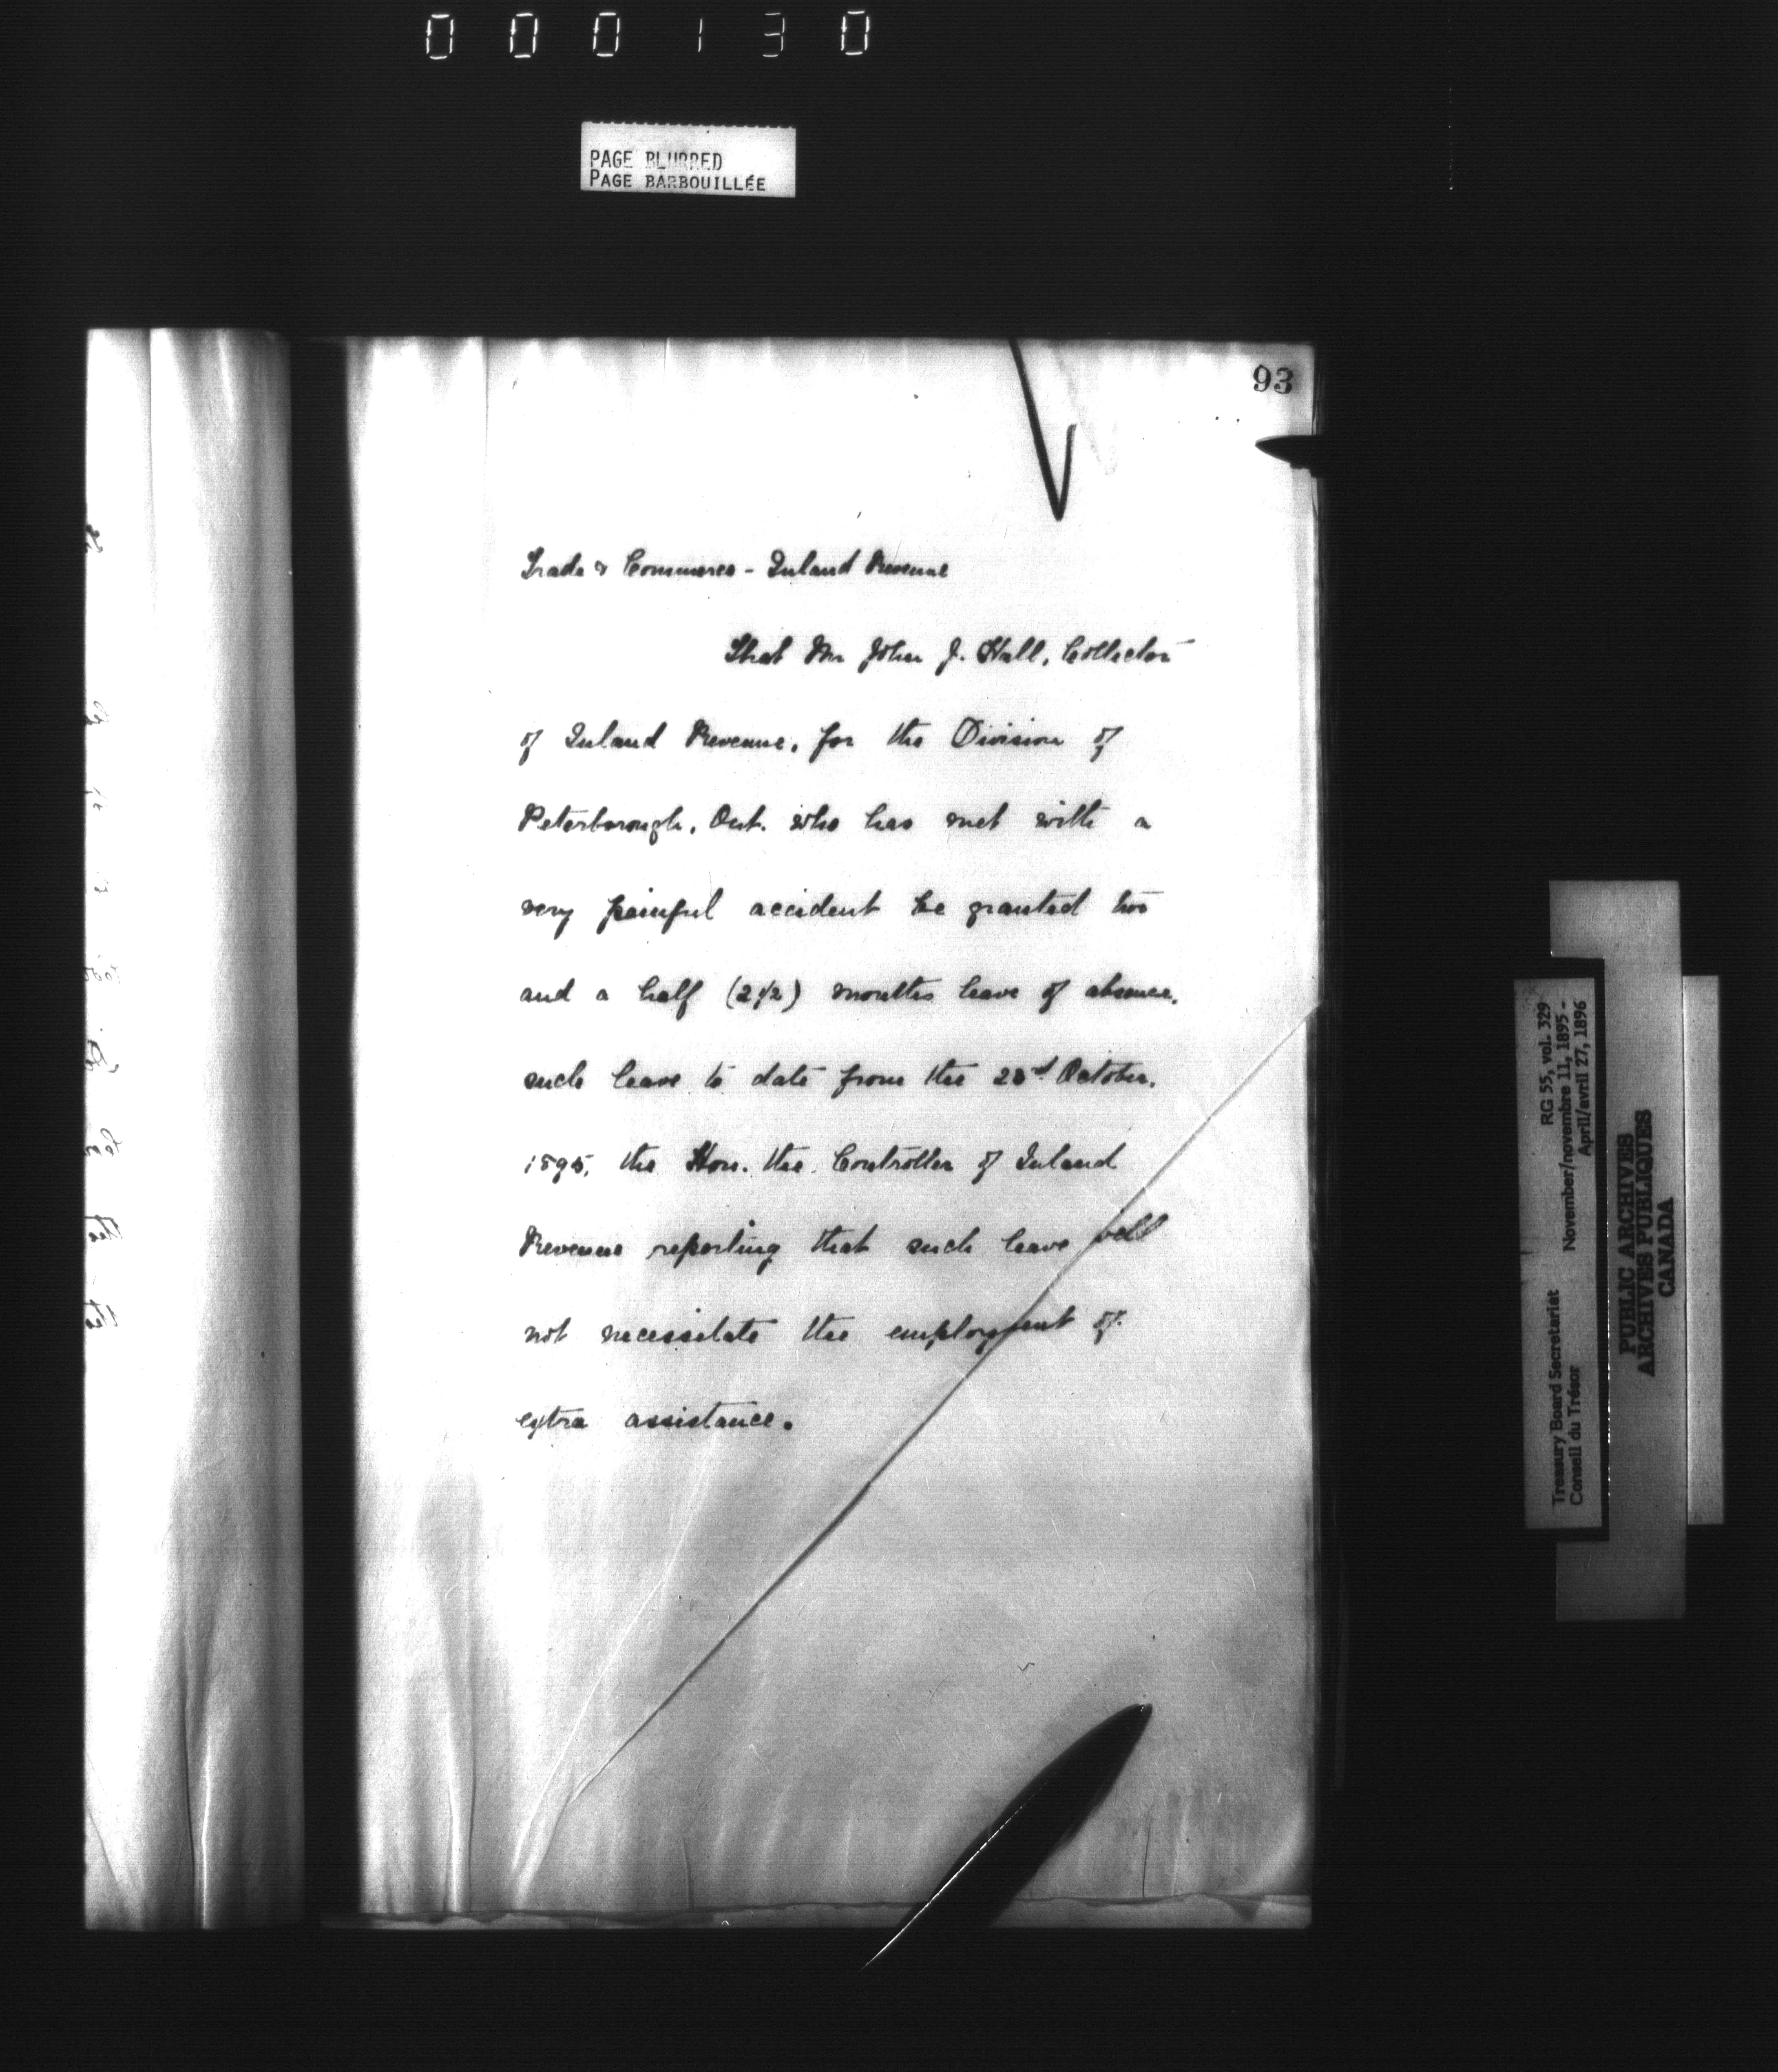 000130
PAGE BLURRED
PAGE BARBOUILLÉE
93
Trade & Commerce - Inland Revenue
That Mr John J. Hall, Collector
of Inland Revenue, for the Division of
Peterborough, Ont. who has met with a
very painful accident be granted two
and a half (2 1/2) months leave of absence,
such leave to date from the 23rd October,
1895, the Hon. the Controller of Inland
Revenue reporting that such leave will
not necessitate the employment of
extra assistance.
Treasury Board Secretariat RG 55, vol. 329
Conseil du Trésor November/novembre 11, 1895 -
April/avril 27, 1896
PUBLIC ARCHIVES
ARCHIVES PUBLIQUES
CANADA